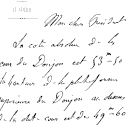 Mon cher Président
La cote absolue de la
cour du Donjon est 53m50
la hauteur de la plateforme
supérieure du Donjon au dessus
de la dite cour est de 49-60